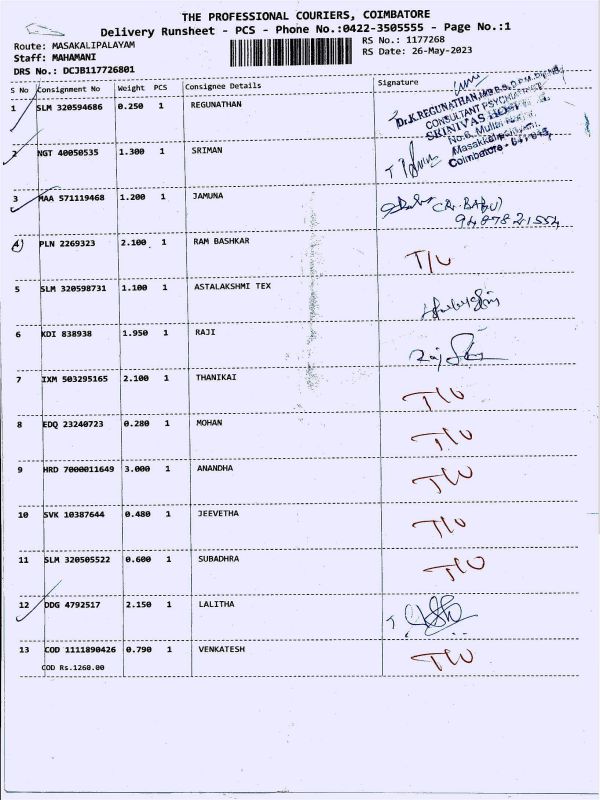 THE PROFESSIONAL COURIERS, COIMBATORE
Delivery Runsheet - PCS - Phone No.:0422-3505555 - Page No.:1
Route: MASAKALIPALAYAM RS No.: 1177268
Staff: MAHAMANI RS Date: 26-May-2023
DRS No.: DCJB117726801
S No Consignment No Weight PCS Consignee Details Signature
1 SLM 320594686 0.250 1 REGUNATHAN
Dr.K.REGUNATHAN,
CONSULTANT PSYCHIATRIST
SRINIVAS
No.6,
Masakkalipalayam,
Coimbatore - 641 015
2 NGT 40050535 1.300 1 SRIMAN
3 MAA 571119468 1.200 1 JAMUNA
(R. BABU)
9487821554
4 PLN 2269323 2.100 1 RAM BASHKAR T/U
5 SLM 320598731 1.100 1 ASTALAKSHMI TEX
6 KDI 838938 1.950 1 RAJI
7 IXM 503295165 2.100 1 THANIKAI T/U
8 EDQ 23240723 0.280 1 MOHAN T/U
9 HRD 7000011649 3.000 1 ANANDHA T/U
10 SVK 10387644 0.480 1 JEEVETHA T/U
11 SLM 320505522 0.600 1 SUBADHRA T/U
12 DDG 4792517 2.150 1 LALITHA
13 COD 1111890426 0.790 1 VENKATESH T/U
COD Rs.1260.00